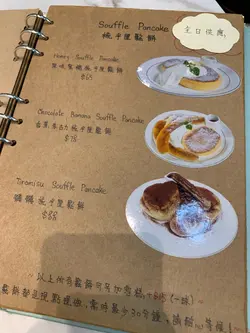 Souffle Pancake
梳乎厘鬆餅
主日供應!
Honey Souffle Pancake
蜂蜜梳乎厘鬆餅
$68
Chocolate Banana Souffle Pancake
香蕉朱古力梳乎厘鬆餅
$78
Tiramisu Souffle Pancake
梳乎厘鬆餅
$88
~ 以上所有鬆餅可另加雪糕 (一球) ~
鬆餅都是現點現做, 需時最少30分鐘,